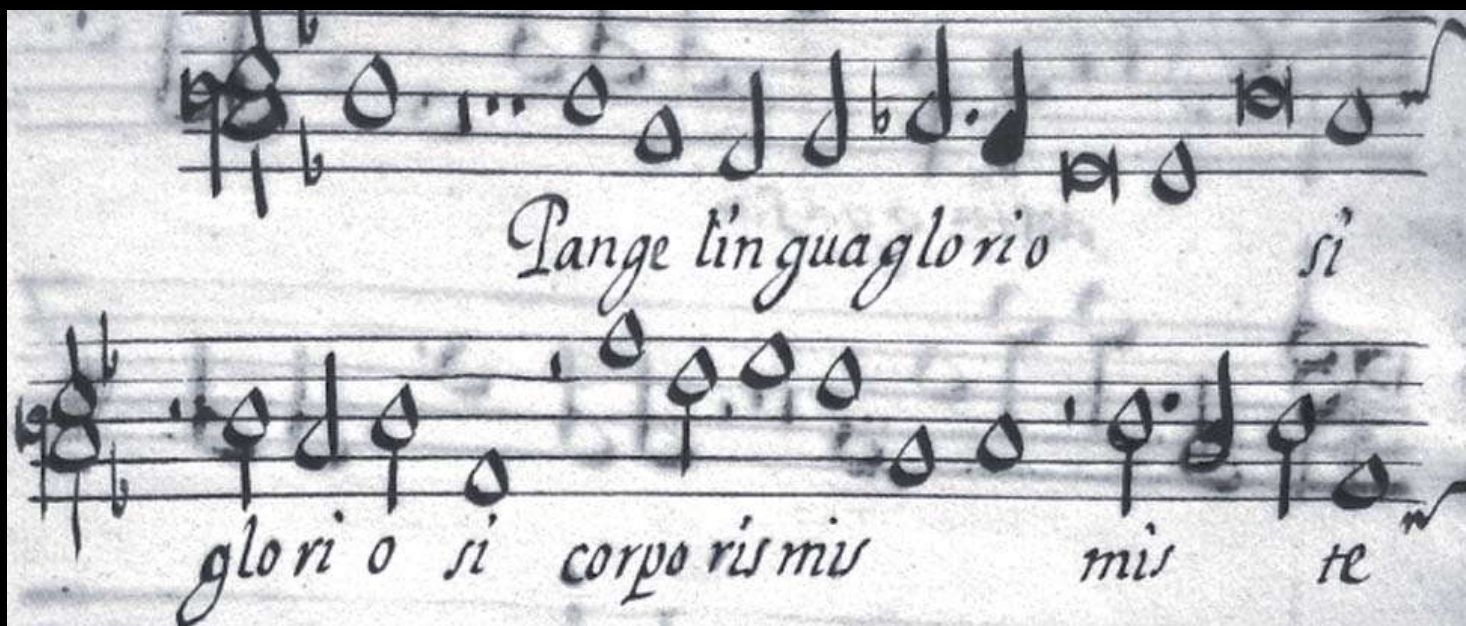 Pange lingua glorio si
glori o si corpo ris mis mis te